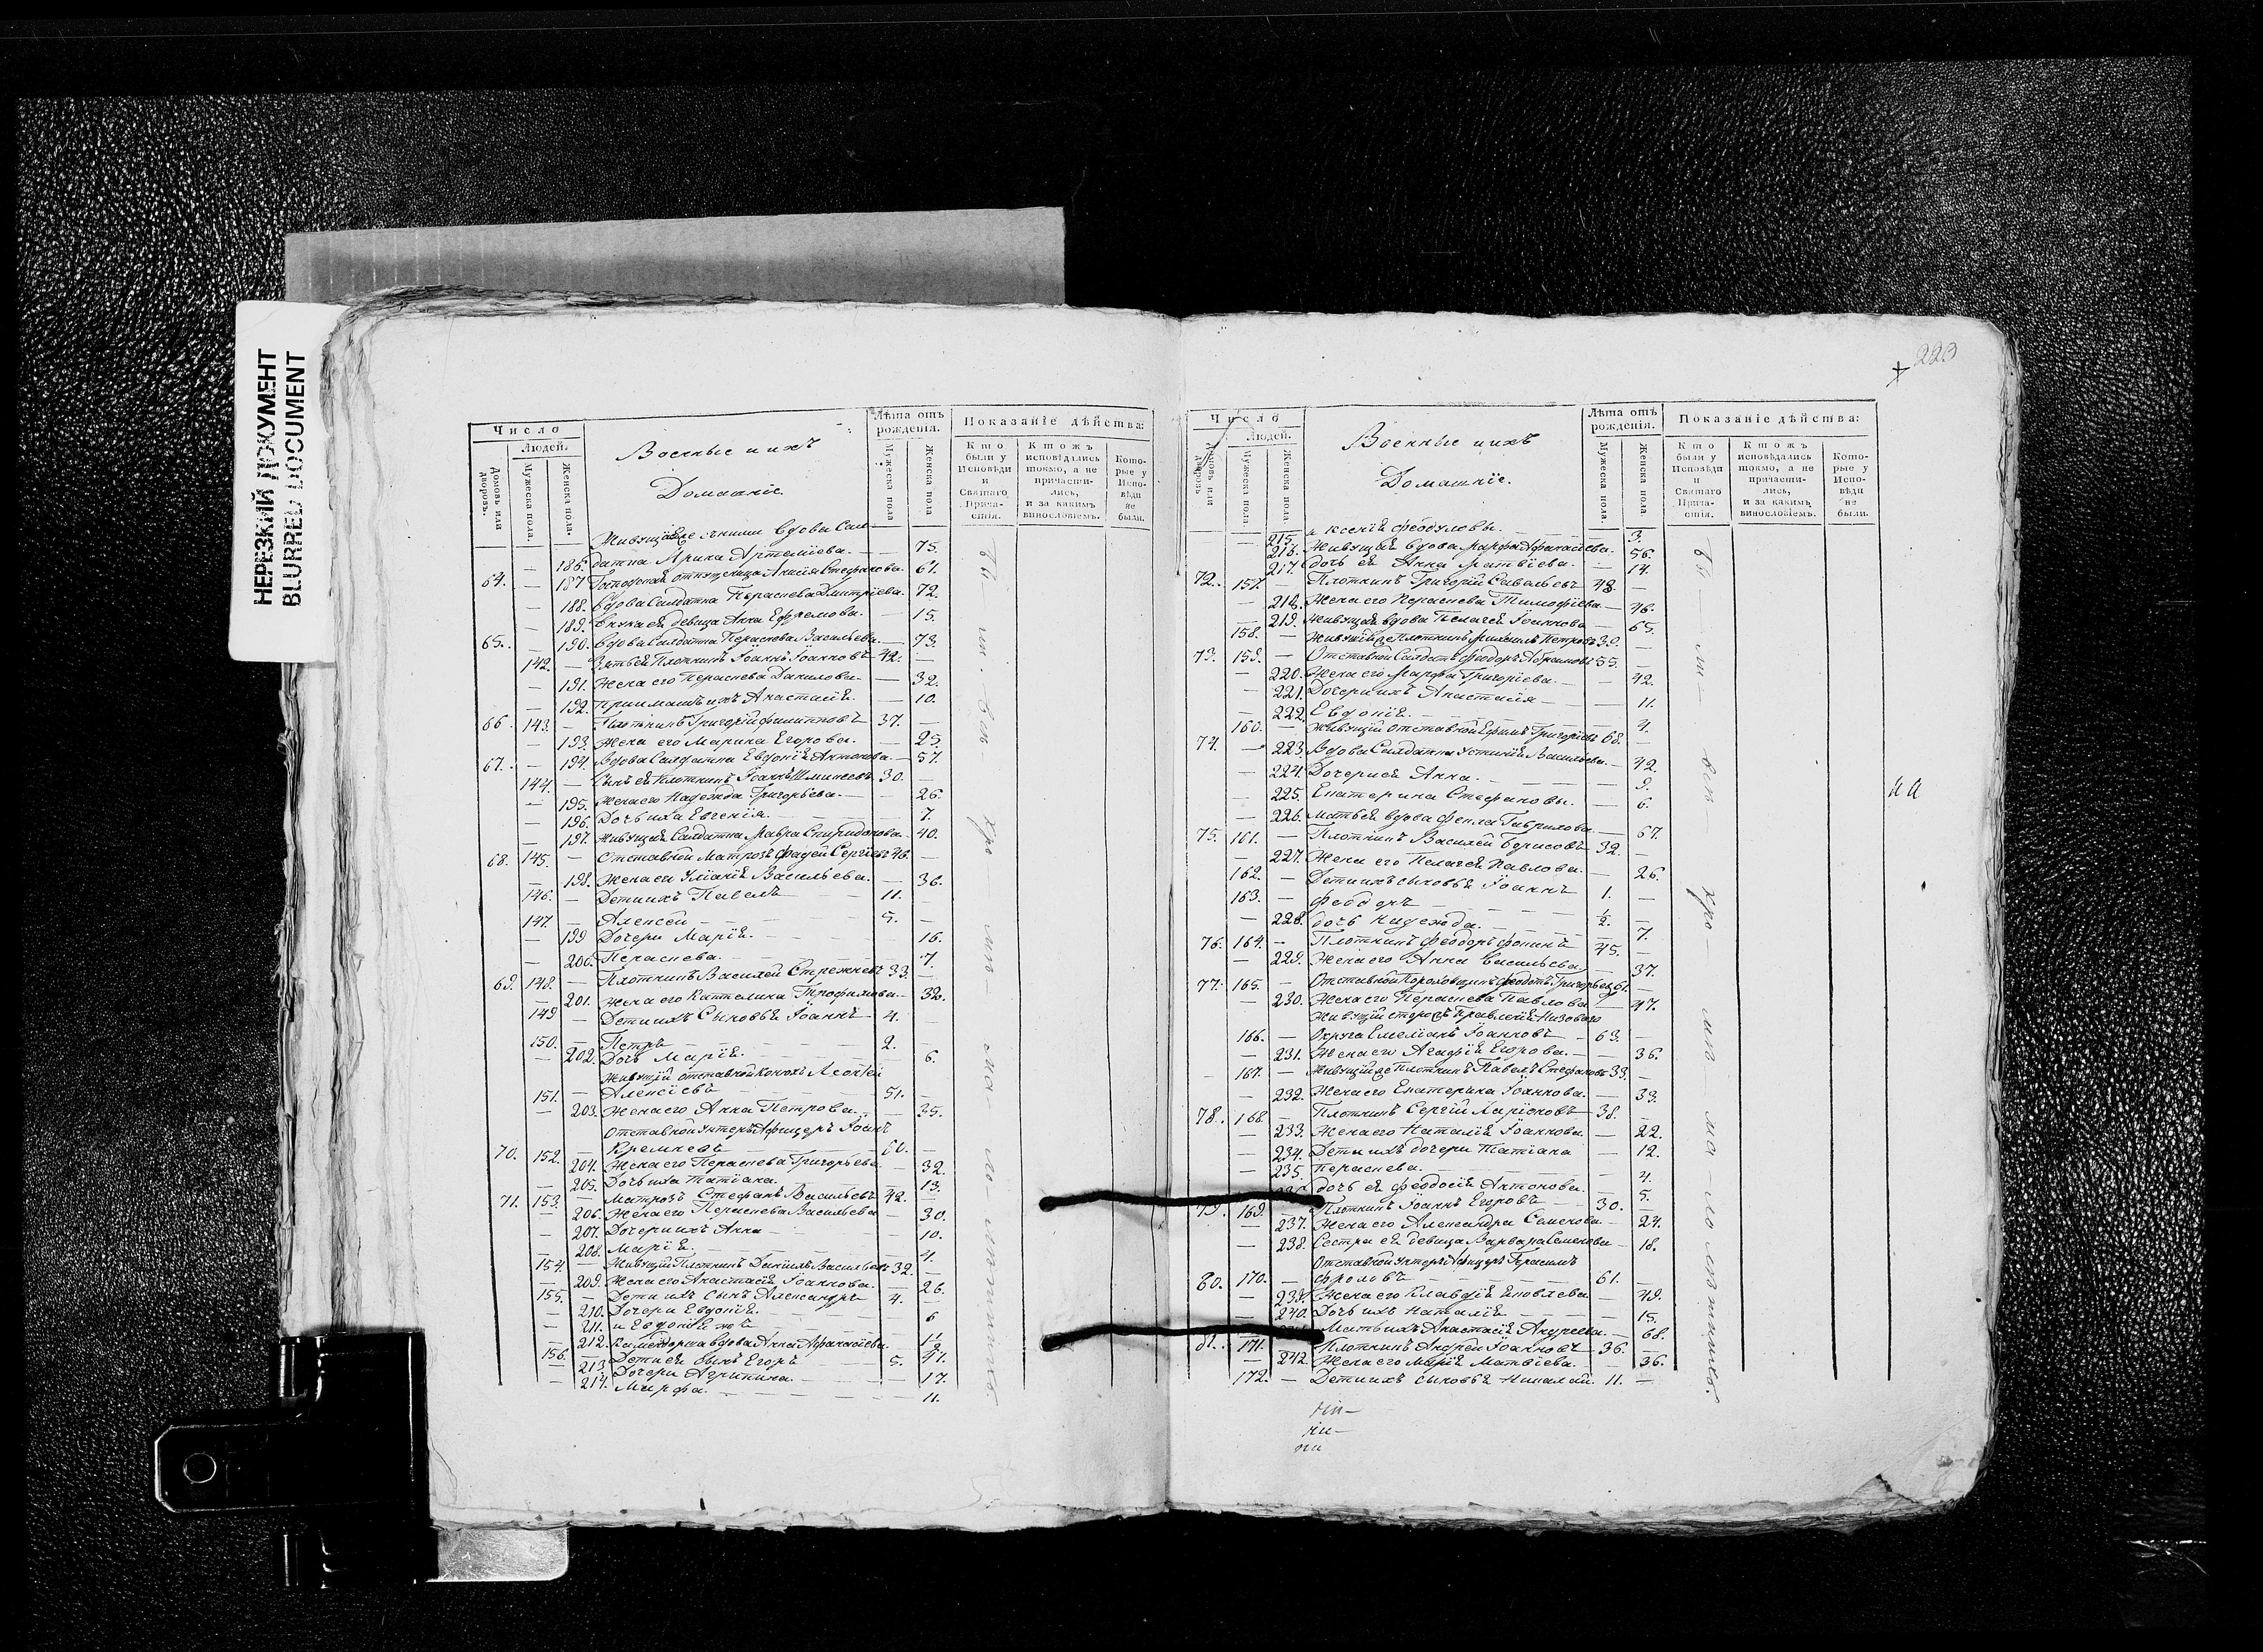 НЕРЕЗКИЙ ДОКУМЕНТ
BLURRED DOCUMENT
Число
Людей.
Домовъ или дворовъ.
Мужеска пола.
Женска пола.
Военные и ихъ
Домашніе.
Лѣта отъ рожденія.
Мужеска пола
Женска пола.
Показаніе дѣйства:
Кто были у Исповѣди и Святаго Прича-стія.
Ктожъ исповѣдались токмо, а не причасти-лись, и за какимъ винословіемъ.
Кото-рые у Испо-вѣди не были.
Живущія вдова Сал
— 186. датка Ирина Артеміева. — 75.
64. — 187 отпущеница Анисія Стефанова. 61.
— 188. Вдова Салдатка Параскева Димитріева. 72.
— 189. Внука ея девица Анна Ефремова. — 15.
65. — 190. Вдова Салдатка Параскева Васильева. — 73.
142. — Зять ея Плотникъ Іоаннъ Іоанновъ 42. —
— 191. Жена его Параскева Данилова — 32.
— 192. Приимышъ ихъ Анастасія. — 10.
66. 143. — Плотникъ Григорій Филипповъ 37. —
— 193. Жена его Марина Егорова. — 25.
67. — 194. Вдова Салдатка Евдокія Антонова. — 57.
144. — Сынъ ея плотникъ Іоаннъ 30. —
— 195. Жена его Надежда Григорьева. — 26.
— 196. Дочь ихъ Евгенія. 7.
— 197. Живущая Салдатка Мавра Спиридонова. 40.
68. 145. — Отставной Матрозъ Фадей Сергіевъ 46. —
— 198. Жена его Уліанія Васильева. — 36.
146. — Дети ихъ Павелъ — 11. —
147. — Алексей — — 5. —
— 199 Дочери Марія. — — 16.
— 200. Параскева. — — 7.
69. 148. — Плотникъ Василей Стрежневъ 33. —
— 201. Жена его Капитолина Трофимова — 32.
149 — Дети ихъ Сыновья Іоаннъ — 4. —
150. — Петръ — — 2.
— 202. Дочь Марія. — — 6.
Живущій отставной конюхъ Леонтей
151. — Алексіевъ — — 51. —
— 203. Жена его Анна Петрова. — 35.
Отставной Унтеръ Афицеръ Іоаннъ
70. 152. — Кремневъ — 60. —
204. Жена его Параскева Григорьева. — 32.
— 205. Дочь ихъ Татіана. — 13.
71. 153. — Матрозъ Стефанъ Васильевъ 42. —
— 206. Жена его Параскева Васильева — 30.
— 207. Дочери ихъ Анна — — 10.
— 208. Марія. — — 4.
154 — Живущій Плотникъ Даніилъ Васильевъ 32. —
— 209. Жена его Анастасія Іоаннова. — 26.
155. — Дети ихъ сынъ Александръ 4. —
— 210. Дочери Евдокія. — — 6
— 211. и Евдокія жъ — — 1/2
— 212. вдова Анна Афанасіева 41.
156. — Дети ея сынъ Егоръ 5. —
— 213. Дочери Агрипина. — — 17.
— 214. Марфа. — — 11.
223
Число
Людей.
Домовъ или дворовъ
Мужеска пола.
Женска пола.
Военные и ихъ
Домашніе.
Лѣта отъ рожденія.
Мужеска пола.
Женска пола.
Показаніе дѣйства:
Кто были у Исповѣди и Святаго Прича-стія.
Ктожъ исповѣдались токмо, а не причасти-лись, и за какимъ винословіемъ.
Кото-рые у Испо-вѣди не были.
— 215. и Ксенія Феодуловы. 3.
— 216. Живущая вдова Марфа Афанасіева. 56.
217. дочь ея Анна Матвіева. — 14.
72. 157. — Плотникъ Григорій Савельевъ 48. —
— 218. Жена его Параскева Тимофіева — 46.
— 219. Живущая вдова Пелагея Іоаннова — 65.
158. — Живущій Плотникъ Михаилъ Петровъ 30. —
73. 159. — Отставной Салдатъ Феодоръ Абрамовъ 55. —
— 220. Жена его Марфа Григоріева. — 42.
— 221. Дочери ихъ Анастасія — — 11.
— 222. Евдокія. — — 4.
160. — Живущій отставной Ефимъ Григорьевъ 68. —
74. — 223. Вдова Салдатка Устинія Васильева. — 42.
— 224. Дочери ея Анна. — — 9.
— 225. Екатерина Стефановы. — 6.
— 226. Мать ея вдова Фекла Гаврилова. — 67.
75. 161. — Плотникъ Василей Борисовъ 32. —
— 227. Жена его Пелагея Павлова. — 26.
162. — Дети ихъ сыновья Іоаннъ 1. —
163. — Феодоръ — — 1/2 —
— 228. дочь Надежда. — — 7.
76. 164. — Плотникъ Феодоръ Фокинъ 45. —
— 229. Жена его Анна Васильева — 37.
77. 165. — Отставной Пороховщикъ Федотъ Григорьевъ 61. —
— 230. Жена его Параскева Павлова — 47.
Живущій сторожъ Правленія Низоваго
166. — Округа Емеліанъ Іоанновъ — 63. —
— 231. Жена его Агафія Егорова. — 36.
— 167. — Живущій Плотникъ Павелъ Стефановъ 33. —
— 232. Жена его Екатерина Іоаннова. — 33.
78. 168 — Плотникъ Сергій Ларіоновъ 38. —
— 233. Жена его Наталія Іоаннова. — 22.
— 234. Дети ихъ дочери Татіана — 12.
— 235. Параскева. — — 4.
дочь ея Феодосія Антонова. — 5.
79. 169. — Плотникъ Іоаннъ Егоровъ — 30. —
— 237. Жена его Александра Семенова — 24.
— 238. Сестра ея девица Варвара Семенова — 18.
Отставной Унтеръ Афицеръ Герасимъ
80. 170. — Фроловъ — — 61. —
— 239. Жена его Клавдія Яковлева — 49.
— 240. Дочь ихъ Наталія — 15.
Мать ихъ Анастасія Андреева. — 68.
81. 171. — Плотникъ Андрей Іоанновъ 36. —
— 242. Жена его Марія Матвіева. — 36.
172. — Дети ихъ сыновья Николай. 11. —